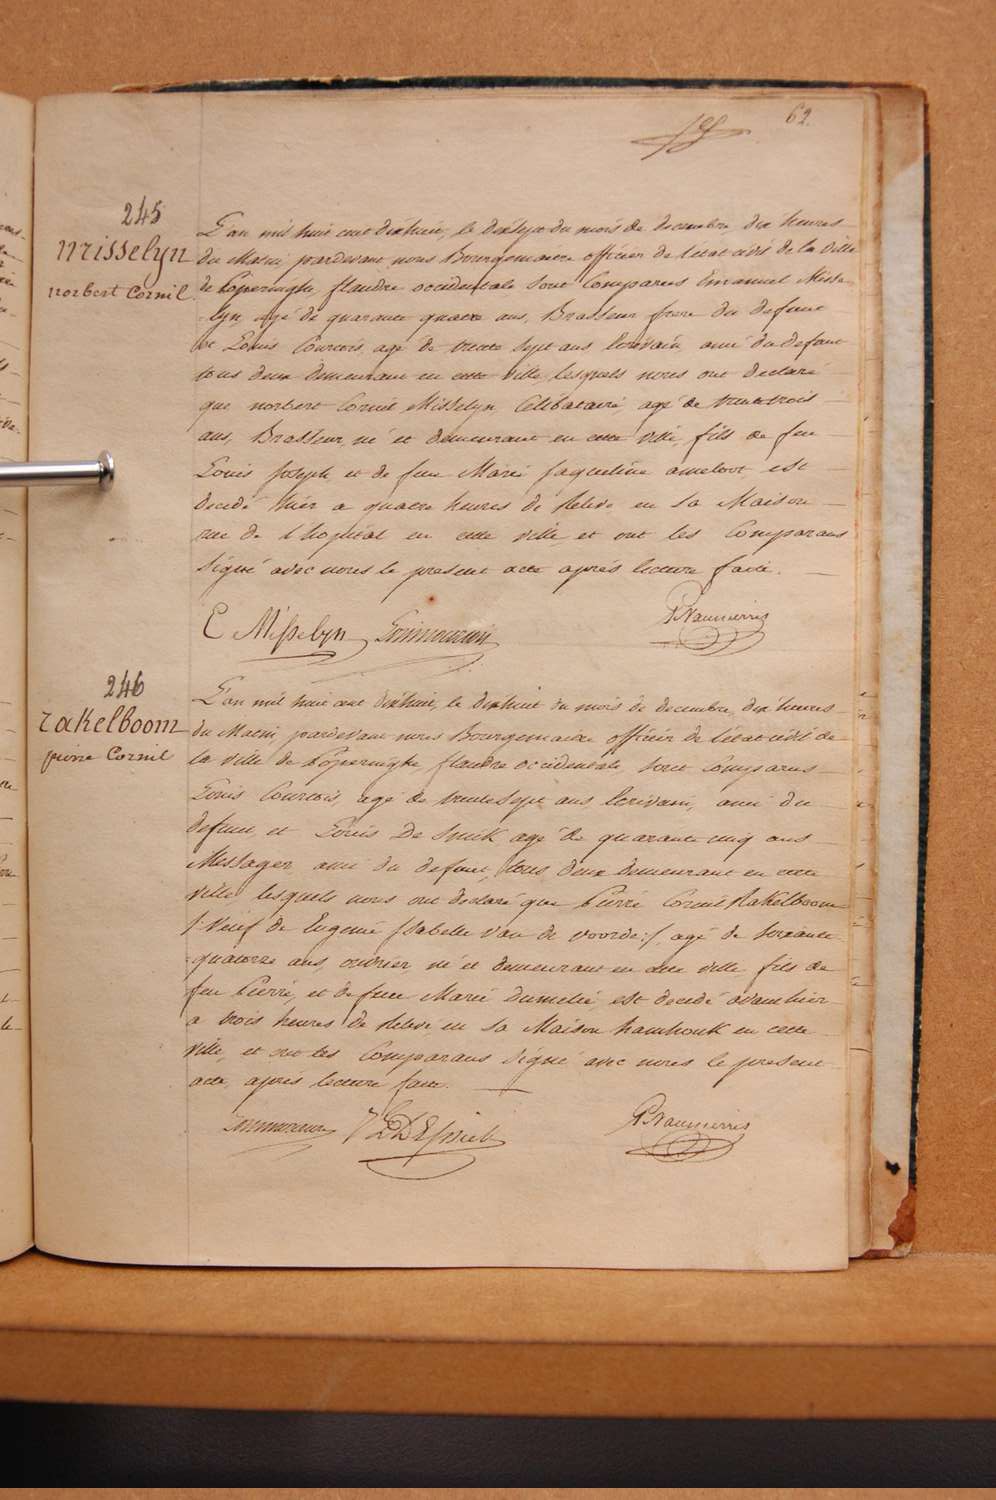 62.
245
Misselyn
norbert Cornil.
L'an mil huit cent dixhuit, le dixsept du mois de decembre dix heures
du Matin, pardevant nous Bourgemaitre officier de l'état civil de la ville
de Poperinghe, flandre occidentale sont Comparus Emanuel Misse
=lyn agé de quarante quatre ans, Brasseur frere du defunt
et Louis Courtois, agé de trente sept ans Ecrivain, ami du defunt
tous deux demeurant en cette ville, lesquels nous ont declaré
que norbert Cornil Misselyn, Célibataire, agé de trentetrois
ans, Brasseur, né et demeurant en cette ville, fils de feu
Louis Joseph et de feue Marie Jaqueline ameloot est
decedé hier a quatre heures de Relevé en Sa Maison
rue de l'hopital en cette ville, et ont les Comparans
Signé avec nous le present acte après lecture faite.
E Misselyn
246
rakelboom
pierre Cornil
L'an mil huit cent dixhuit, le dixhuit du mois de decembre, dix heures
du Matin, pardevant nous Bourgemaitre officier de l'état civil de
la ville de Poperinghe, flandre occidentale, sont comparus
Louis Courtois, agé de trentesept ans Ecrivain, ami du
defunt, et Louis De Snick agé de quarante cinq ans
Messager ami du defunt, tous deux demeurant en cette
ville lesquels nous ont declaré que Pierre Cornil Rakelboom
/: Veuf de Eugenie Isabelle van de voorde :/ agé de soixante
quatorze ans, ouvrier né et demeurant en cette ville fils de
feu Pierre, et de feue Marie dumelie, est decedé avant hier
a trois heures de Relevé en Sa Maison hamhouk en cette
ville, et ont les Comparans Signé avec nous le present
acte, après lecture faite.